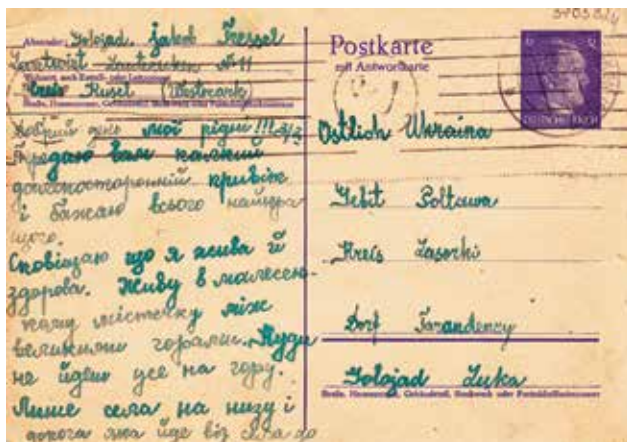 Absender: Golojad. Jakob Fressel
Landwirt Lauterecken № 11
Wohnort, auch Zustell- oder Leitpostamt
Kreis Kusel (Westmark)
Straße, Hausnummer, Gebäudeteil, Stockwerk oder Postschließfachnummer
Добрий день мої рідні!!!
Предаю вам палкий
долекосторонній привіт
і бажаю всього найкра
щого.
Сповіщаю що я жива й
здорова. Живу в малесень-
кому містечку між
великими горами. Куди
не йдеш усе на гору.
Лише села на низу і
дорога яка йде від села до
Postkarte
mit Antwortkarte
DEUTSCHES REICH
Ostlich Ukraina
Gebit Poltawa
Kreis Lasorki
Dorf Tarandency
Golojad Luka
Straße, Hausnummer, Gebäudeteil, Stockwerk oder Postschließfachnummer